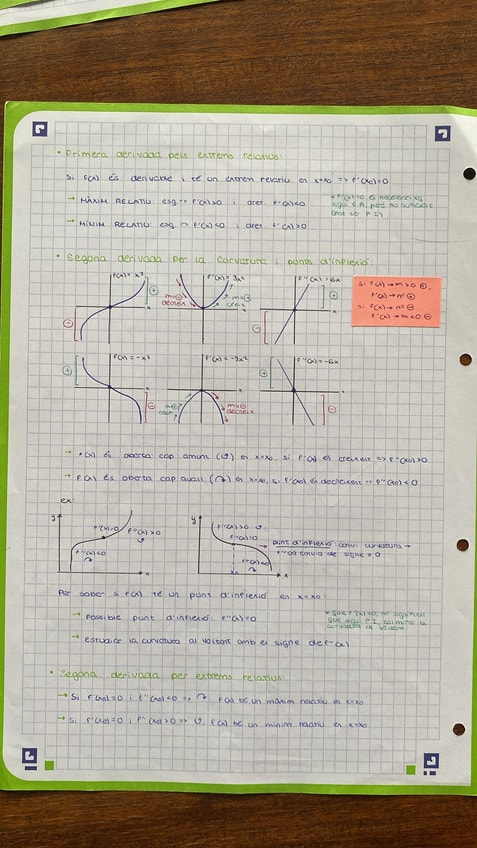 • Primera derivada pels extrems relatius:
Si f(x) és derivable i té un extrem relatiu en x=x₀ => f'(x₀)=0
→ MÀXIM RELATIU esq => f'(x)>0 i dret f'(x)<0
→ MÍNIM RELATIU esq => f'(x)<0 i dret f'(x)>0
• Segona derivada per la curvatura i punts d'inflexió:
f(x)=x³
f'(x)=3x²
f''(x)=6x
m=⊖ decreix
m=⊕ creix
Si f(x) → m>0 ⊕,
f'(x) → nº ⊕
Si f(x) → nº ⊖
f'(x) → m<0 ⊖
f(x)=-x³
f'(x)=-3x²
f''(x)=-6x
m=⊕ creix
m=⊖ decreix
→ f(x) és oberta cap amunt (∪) en x=x₀, si f'(x) és creixent => f''(x₀)>0
→ f(x) és oberta cap avall (∩) en x=x₀, si f'(x₀) és decreixent => f''(x₀)<0
ex:
y
f''(x)=0
f''(x)>0
f''(x)<0
x
y
f''(x)>0
f''(x)=0
f''(x)<0
x₀
x
→ punt d'inflexió: canvi curvatura →
f''(x) canvia de signe = 0
Per saber si f(x) té un punt d'inflexió en x=x₀:
→ Possible punt d'inflexió: f''(x)=0
→ Estudiar la curvatura al voltant amb el signe de f''(x)
* que f''(x)=0, no significa
que sigui P.I,
curvatura al voltant
• Segona derivada per extrems relatius:
→ Si f'(x₀)=0 i f''(x₀)<0 => ∩, f(x) té un màxim relatiu en x=x₀
→ Si f'(x₀)=0 i f''(x₀)>0 => ∪, f(x) té un mínim relatiu en x=x₀